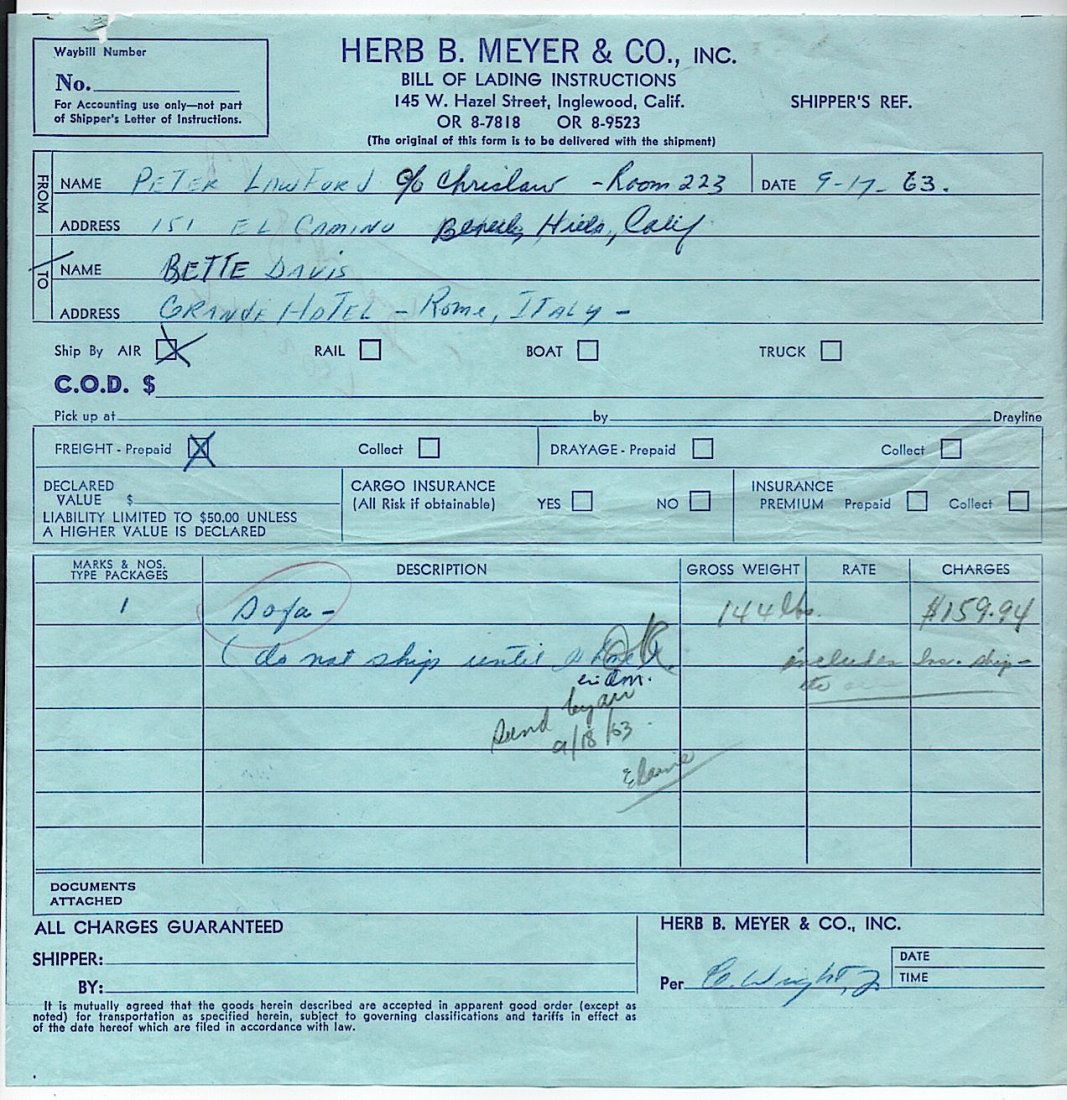 Waybill Number
No.
For Accounting use only—not part
of Shipper's Letter of Instructions.
HERB B. MEYER & CO., INC.
BILL OF LADING INSTRUCTIONS
145 W. Hazel Street, Inglewood, Calif.
OR 8-7818 OR 8-9523
(The original of this form is to be delivered with the shipment)
SHIPPER'S REF.
FROM
NAME PETER LAWFORD c/o Chrislaw - Room 223 DATE 9-17-63.
ADDRESS 151 EL CAMINO Beverly Hills, Calif
TO
NAME BETTE DAVIS
ADDRESS GRANDE HOTEL - Rome, ITALY -
Ship By AIR RAIL BOAT TRUCK
C.O.D. $
Pick up at by Drayline
FREIGHT - Prepaid Collect DRAYAGE - Prepaid Collect
DECLARED
VALUE $
LIABILITY LIMITED TO $50.00 UNLESS
A HIGHER VALUE IS DECLARED
CARGO INSURANCE
(All Risk if obtainable) YES NO
INSURANCE
PREMIUM Prepaid Collect
MARKS & NOS.
TYPE PACKAGES
DESCRIPTION GROSS WEIGHT RATE CHARGES
1 Sofa - 144 lbs. $159.94
(do not ship until OK
includes Ins. ship-
Send by air
9/18/63.
Elaine
DOCUMENTS
ATTACHED
ALL CHARGES GUARANTEED
SHIPPER:
BY:
It is mutually agreed that the goods herein described are accepted in apparent good order (except as
noted) for transportation as specified herein, subject to governing classifications and tariffs in effect as
of the date hereof which are filed in accordance with law.
HERB B. MEYER & CO., INC.
Per Wright, Jr
DATE
TIME